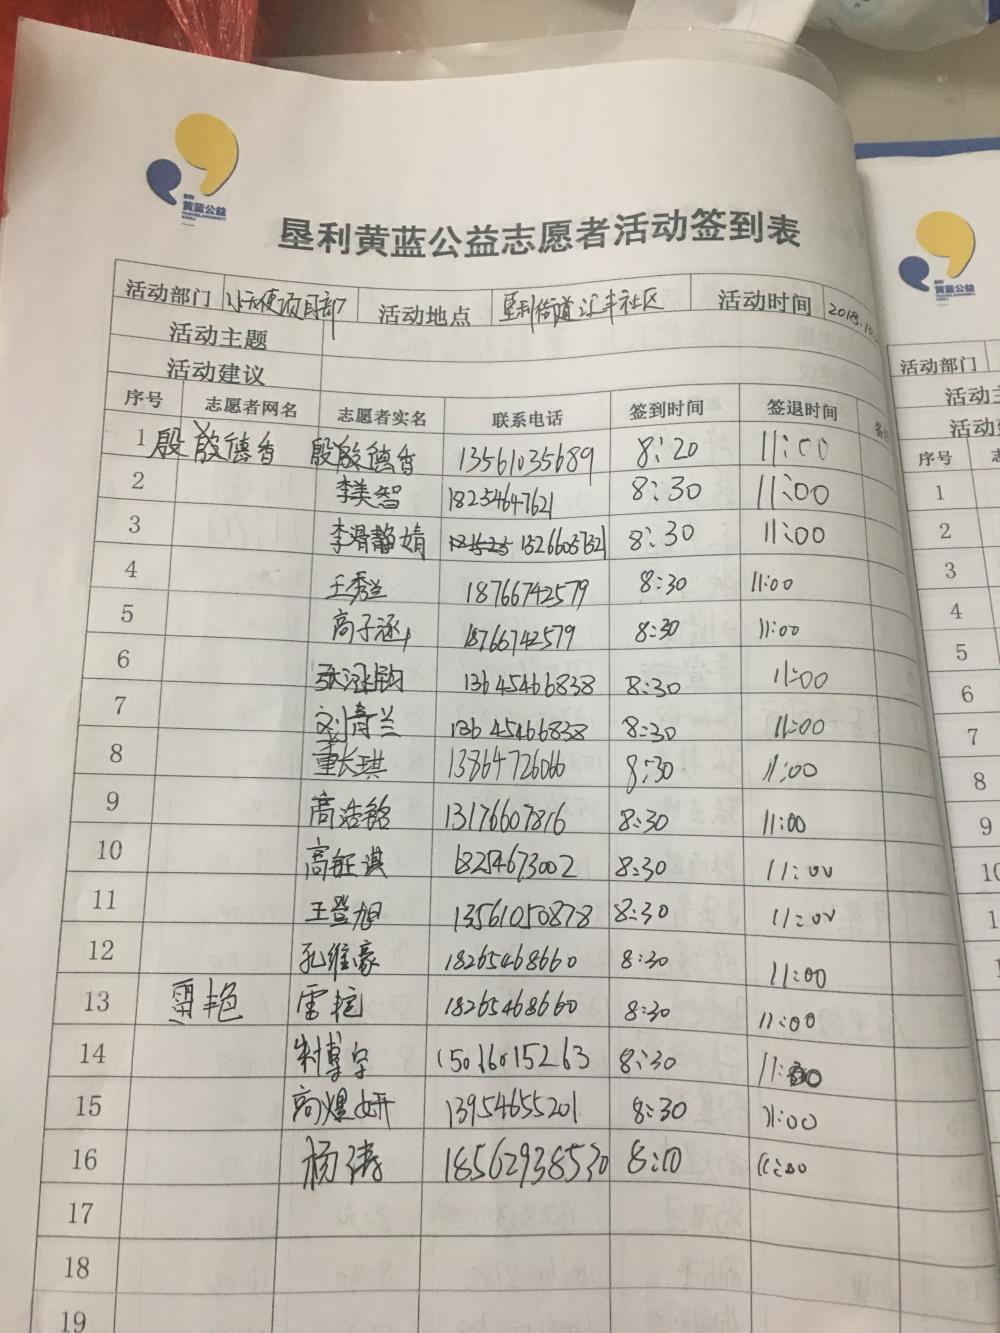 垦利
黄蓝公益
垦利黄蓝公益志愿者活动签到表
活动部门 项目部 活动地点 垦利街道汇丰社区 活动时间 2018.10
活动主题
活动建议
序号 志愿者网名 志愿者实名 联系电话 签到时间 签退时间
1 殷德香 殷德香 13561035689 8:20 11:00
2 李美智 18234647621 8:30 11:00
3 李滑静婧 8:30 11:00
4 王秀兰 18766742579 8:30 11:00
5 高子涵 18766742579 8:30 11:00
6 张 钧 13645466838 8:30 11:00
7 刘青兰 13645466838 8:30 11:00
8 董长琪 13864726066 8:30 11:00
9 高浩铭 13176607816 8:30 11:00
10 高钰淇 18254673002 8:30 11:00
11 王登旭 13561050878 8:30 11:00
12 孔维豪 18265468660 8:30 11:00
13 雷艳 雷艳 18265468660 8:30 11:00
14 15016015263 8:30 11:00
15 高煜妍 13954655201 8:30 11:00
16 杨涛 18562938530 8:10 11:00
17
18
19
黄蓝公益
活动部门
序号
1
2
3
4
5
6
7
8
9